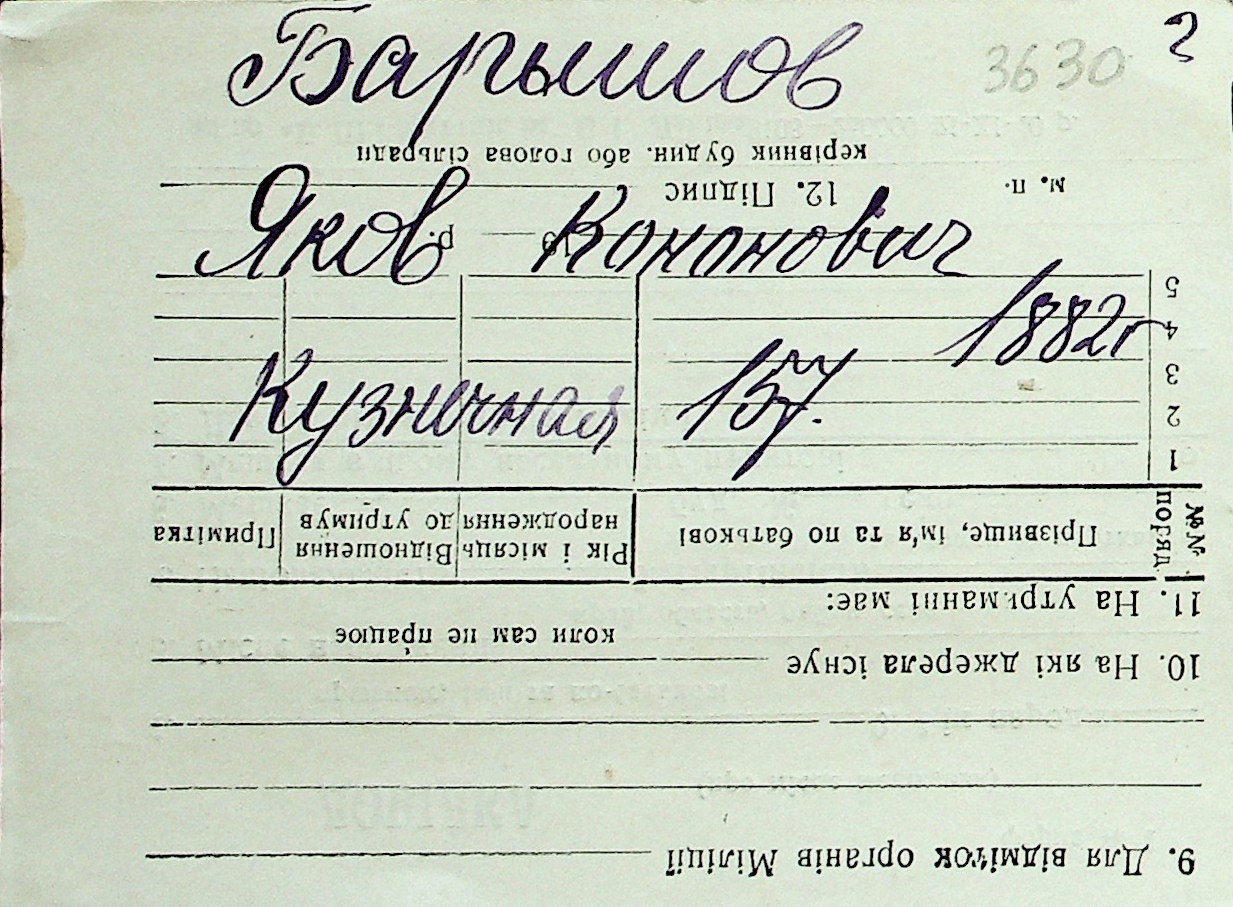 3630
Барышов
Яков Кононович
1882г
Кузнечная 157.
9. Для відміток органів Міліції
10. На які джерела існує
коли сам не працює
11. На утриманні має:
№№ поряд. Прізвище, ім'я та по батькові Рік і місяць народження Відношення до утримув Примітка
1
2
3
4
5
р.
м. п. 12. Підпис
керівник будин. або голова сільради